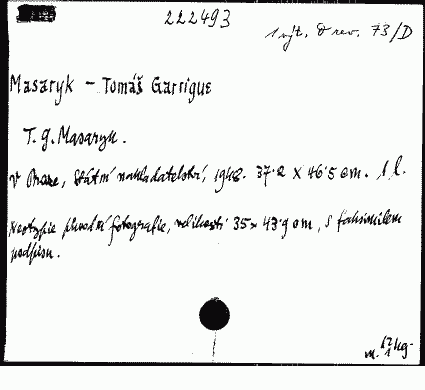 222493
1 výt. D rev. 73/D
Masaryk - Tomáš Garrigue
T. G. Masaryk.
V Praze, Státní nakladatelství, 1948. 37.2 X 46.5 cm. 1 l.
Neotypie původní fotografie, velikosti 35 x 43.9 cm, s faksimilem
podpisu.